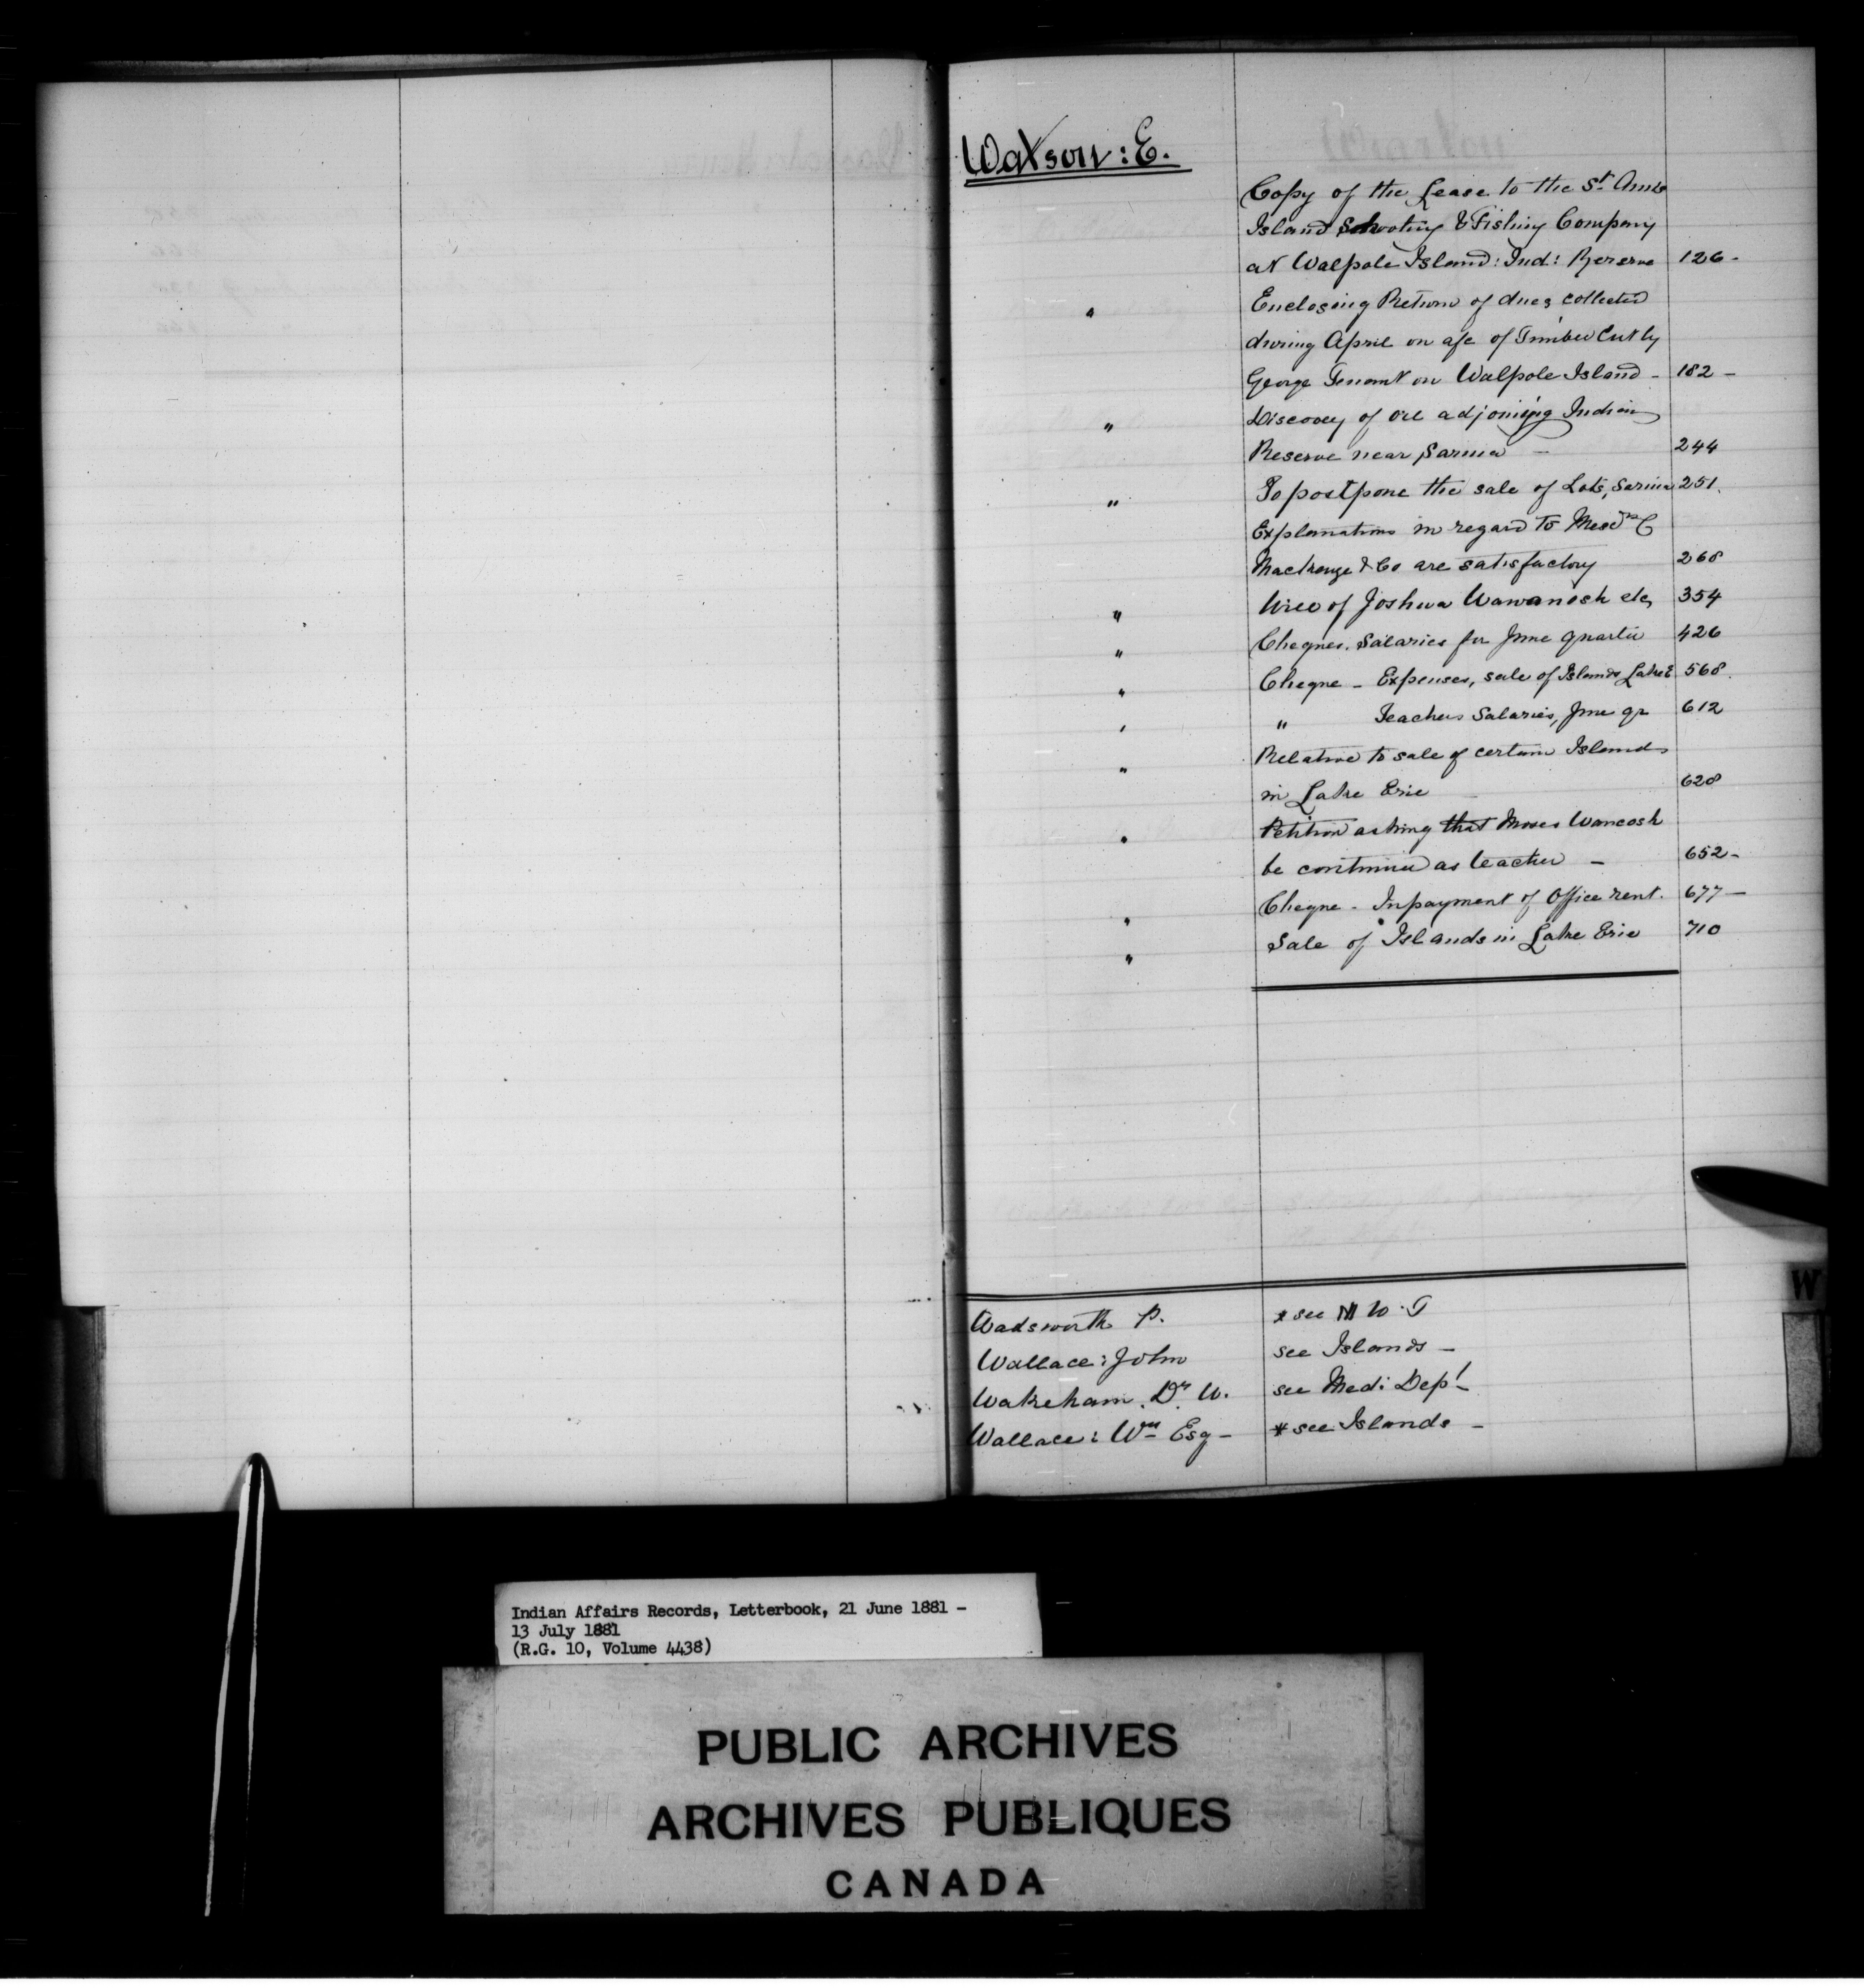 Watson : E.
Copy of the Lease to the St. Anne
Island Shooting & Fishing Company
at Walpole Island : Ind : Reserve 126 -
" Enclosing Return of dues collected
during April on a/c of Timber Cut by
George Tenant on Walpole Island - 182 -
" Discovey of oil adjoining Indian
Reserve near Sarnia - 244
" To postpone the sale of Lots, Sarnia 251.
Explanations in regard to Messrs C
Mackenzie & Co are satisfactory 268
" Wree of Joshua Wawanosh etc 354
" Cheques. Salaries for June quarter 426
" Cheque - Expenses, sale of Islands Lake E 568.
" " Teachers Salaries, June qr 612
" Relative to sale of certain Islands
in Lake Erie 628
" Petition asking that Moses Wancosh
be continued as teacher - 652 -
" Cheque - In payment of Office rent. 677 -
" Sale of Islands in Lake Erie 710
Wadsworth P. * see N W. T
Wallace : John see Islands -
Wakeham. Dr. W. see Medi Dept -
Wallace : Wm Esq - * see Islands -
W
Indian Affairs Records, Letterbook, 21 June 1881 -
13 July 1881
(R.G. 10, Volume 4438)
PUBLIC ARCHIVES
ARCHIVES PUBLIQUES
CANADA